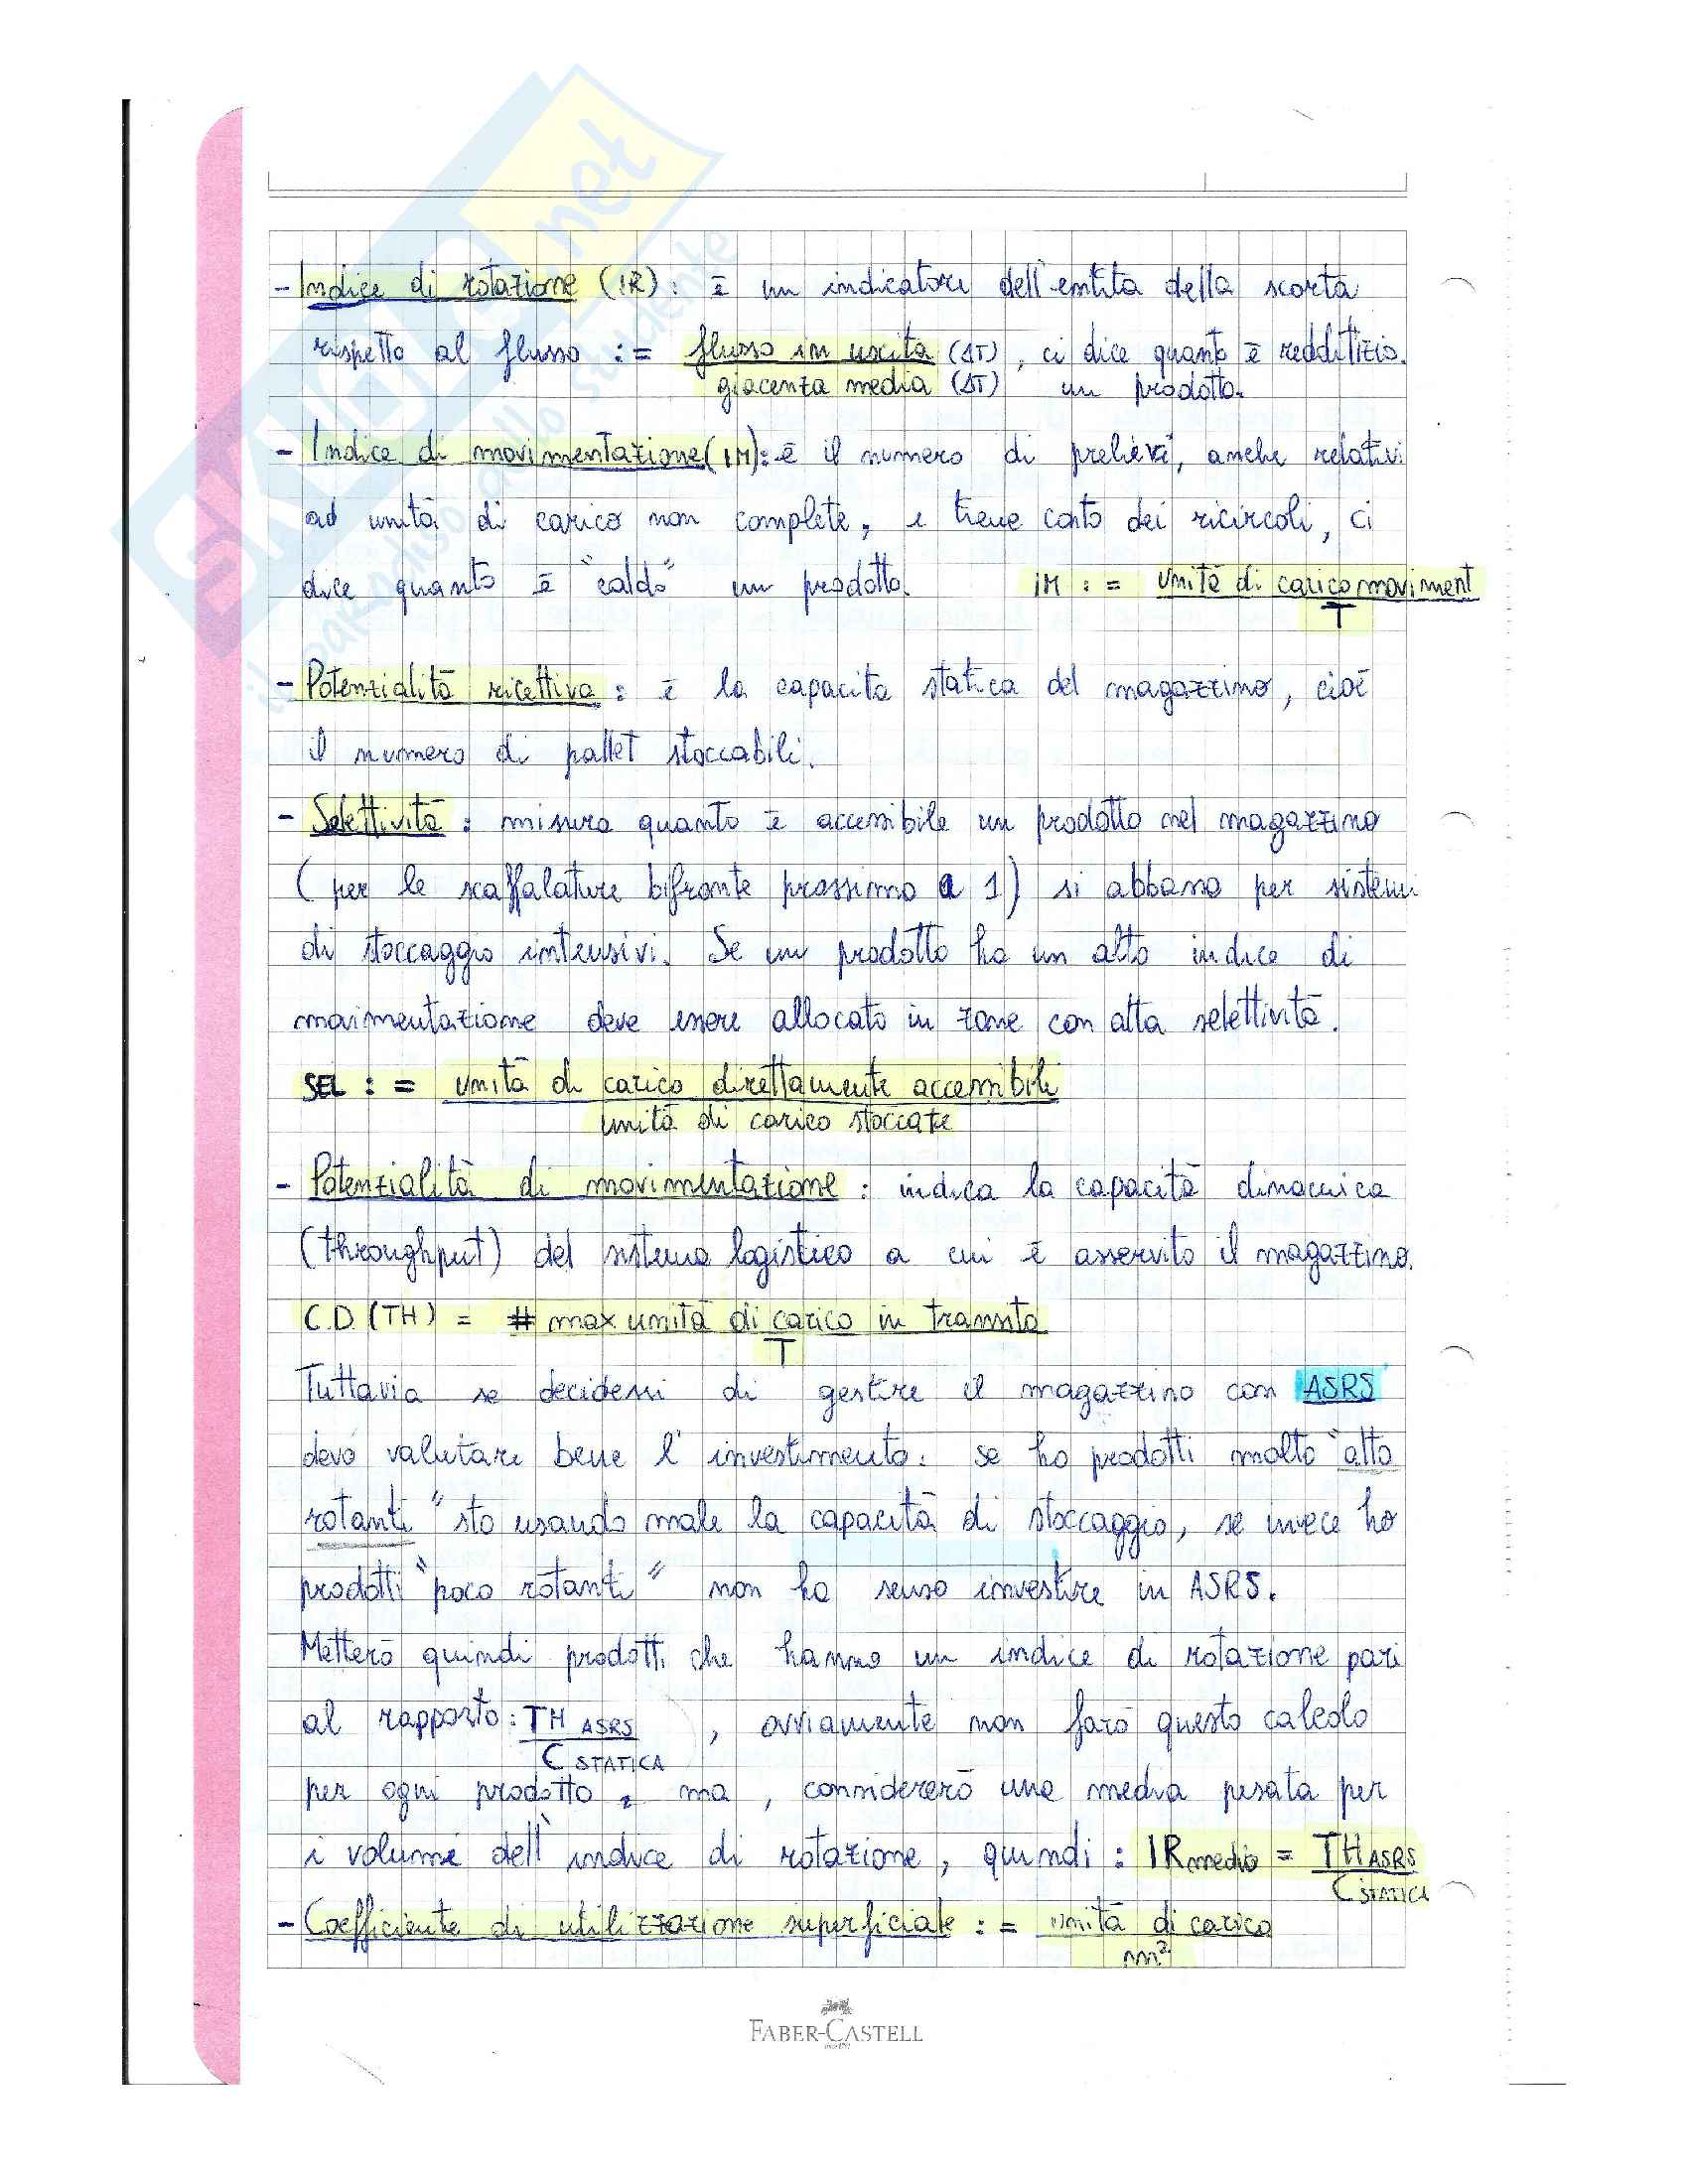 - Indice di rotazione (IR): è un indicatore dell'entità della scorta
rispetto al flusso := flusso in uscita (ΔT) , ci dice quanto è redditizio
giacenza media (ΔT) un prodotto.
- Indice di movimentazione (IM): è il numero di prelievi, anche relativi
ad unità di carico non complete, e tiene conto dei ricircoli, ci
dice quanto è "caldo" un prodotto. IM := unità di carico moviment
T
- Potenzialità ricettiva : è la capacità statica del magazzino, cioè
il numero di pallet stoccabili.
- Selettività : misura quanto è accessibile un prodotto nel magazzino
(per le scaffalature bifronte prossimo a 1) si abbassa per sistemi
di stoccaggio intensivi. Se un prodotto ha un alto indice di
movimentazione deve essere allocato in zone con alta selettività.
SEL := unità di carico direttamente accessibili
unità di carico stoccate
- Potenzialità di movimentazione : indica la capacità dinamica
(throughput) del sistema logistico a cui è asservito il magazzino.
C.D. (TH) = # max unità di carico in transito
T
Tuttavia se decidessi di gestire il magazzino con ASRS
devo valutare bene l'investimento: se ho prodotti molto "alto
rotanti" sto usando male la capacità di stoccaggio, se invece ho
prodotti "poco rotanti" non ha senso investire in ASRS.
Metterò quindi prodotti che hanno un indice di rotazione pari
al rapporto: TH ASRS , ovviamente non farò questo calcolo
C STATICA
per ogni prodotto, ma, considererò una media pesata per
i volumi dell'indice di rotazione, quindi : IR medio = TH ASRS
C STATICA
- Coefficiente di utilizzazione superficiale := unità di carico
m²
FABER-CASTELL
SKUOLA.net
il paradiso dello studente